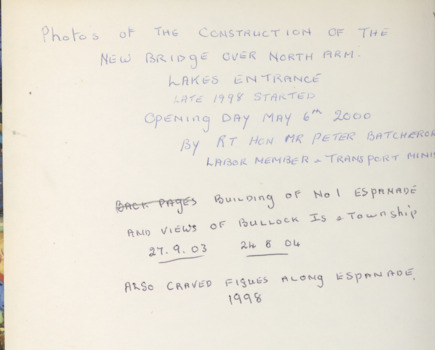 Photos of THE CONSTRUCTION OF THE
NEW BRIDGE OVER NORTH ARM.
LAKES ENTRANCE
LATE 1998 STARTED
OPENING DAY MAY 6TH 2000
BY RT HON MR PETER BATCHELOR
LABOR MEMBER & TRANSPORT MINIS
BACK PAGES BUILDING OF No 1 ESPANADE
AND VIEWS OF BULLOCK IS & TOWNSHIP
27.9.03 24 8 04
ALSO CRAVED FIGUES ALONG ESPANADE.
1998